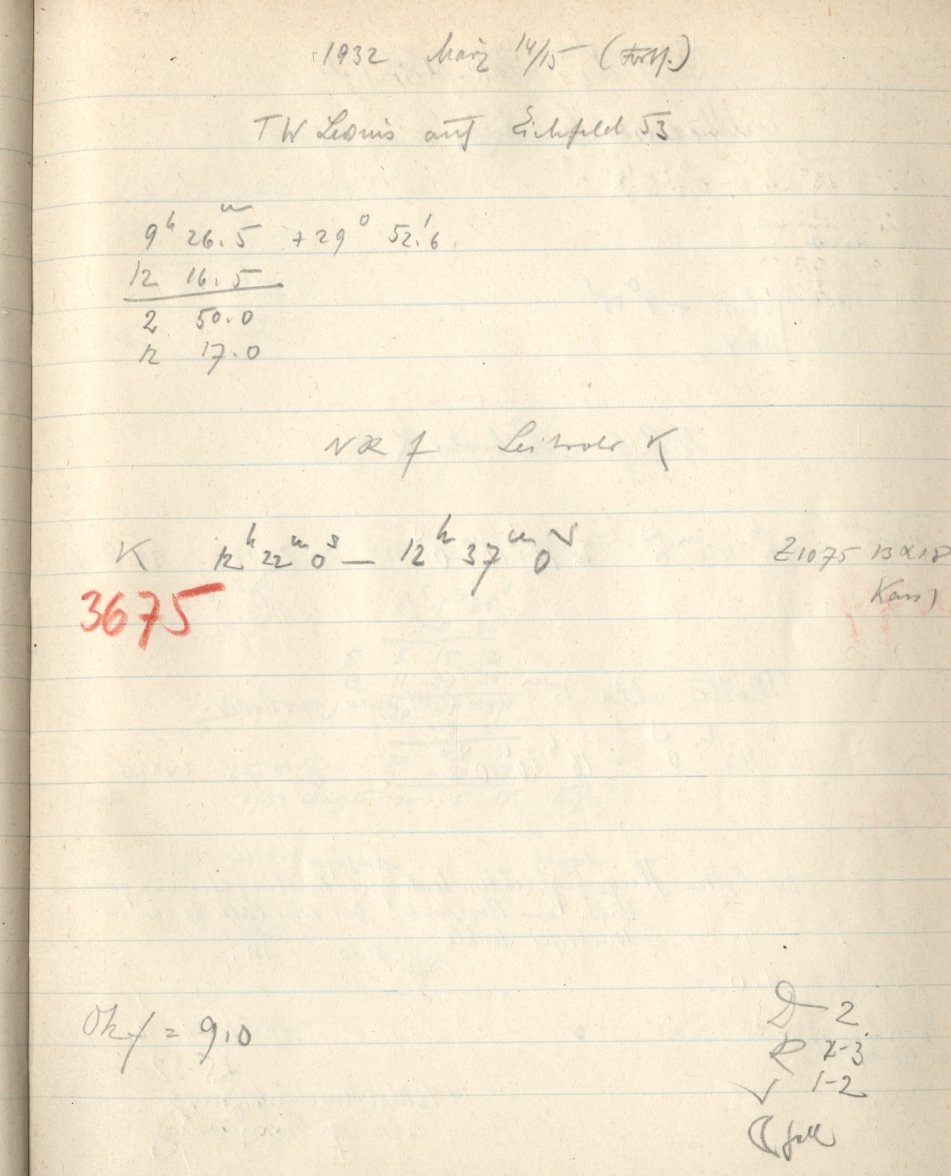 1932 März 14/15 (Forts.)
TW Leonis auf Eichfeld 53
9h 26.m5 +29° 52.'6
12 16.5
2 50.0
12 17.0
f K
K 12h 22m 0s — 12h 37m 0s
Z1075 13x18
3675
Okf = 9,0
D 2
R 2-3
1-2
hell